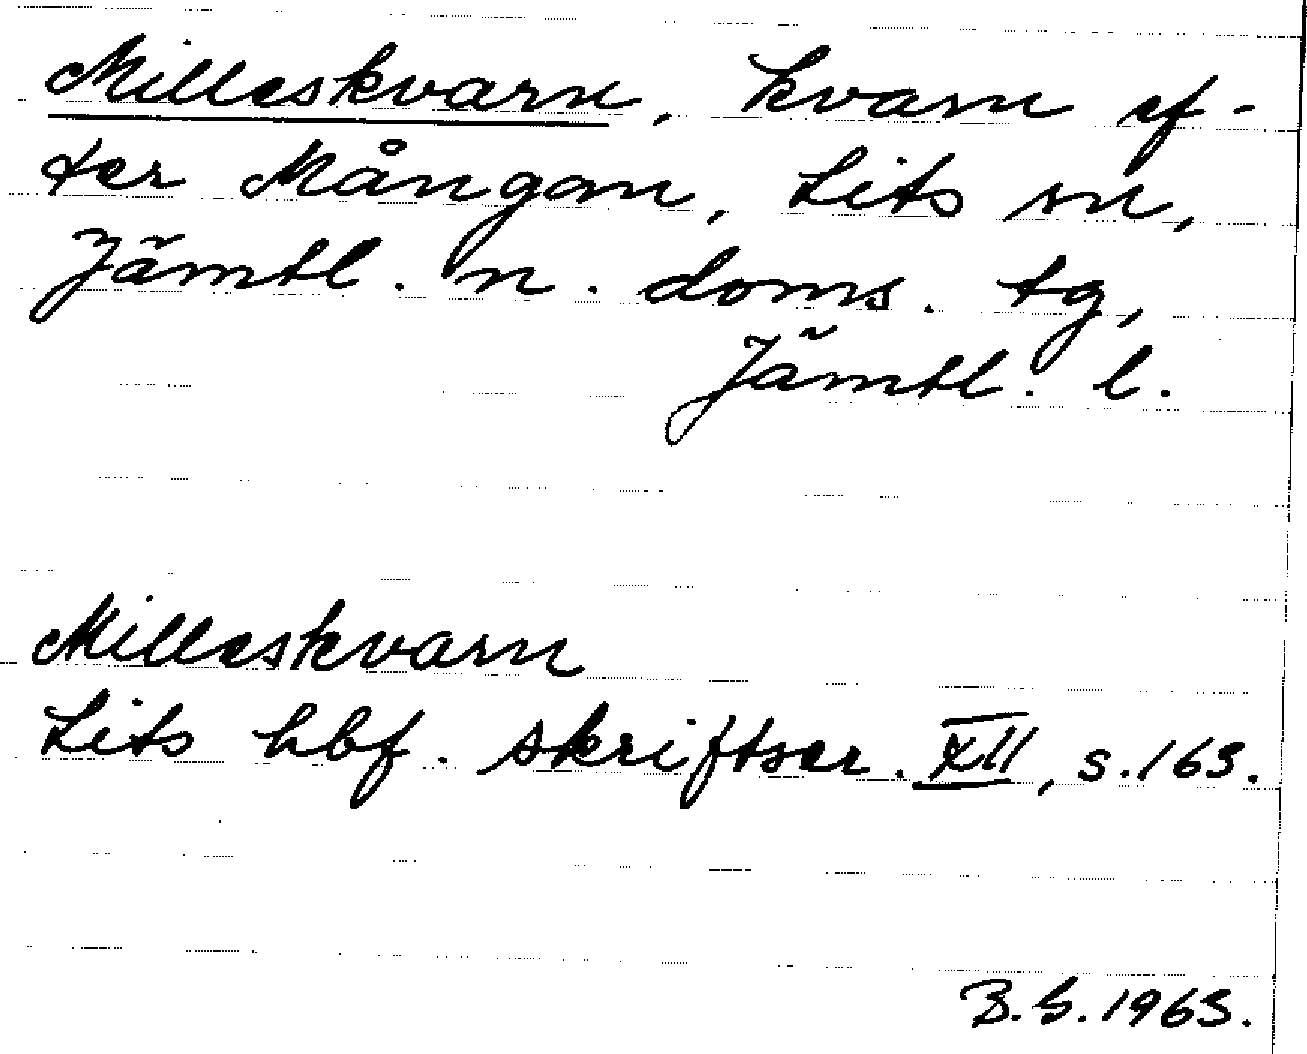 Milleskvarn, kvarn ef-
ter Mångan, Lits sn,
Jämtl. n. doms. tg,
Jämtl. l.
Milleskvarn
Lits hbf. skriftser. XII, s. 163.
B. G. 1963.